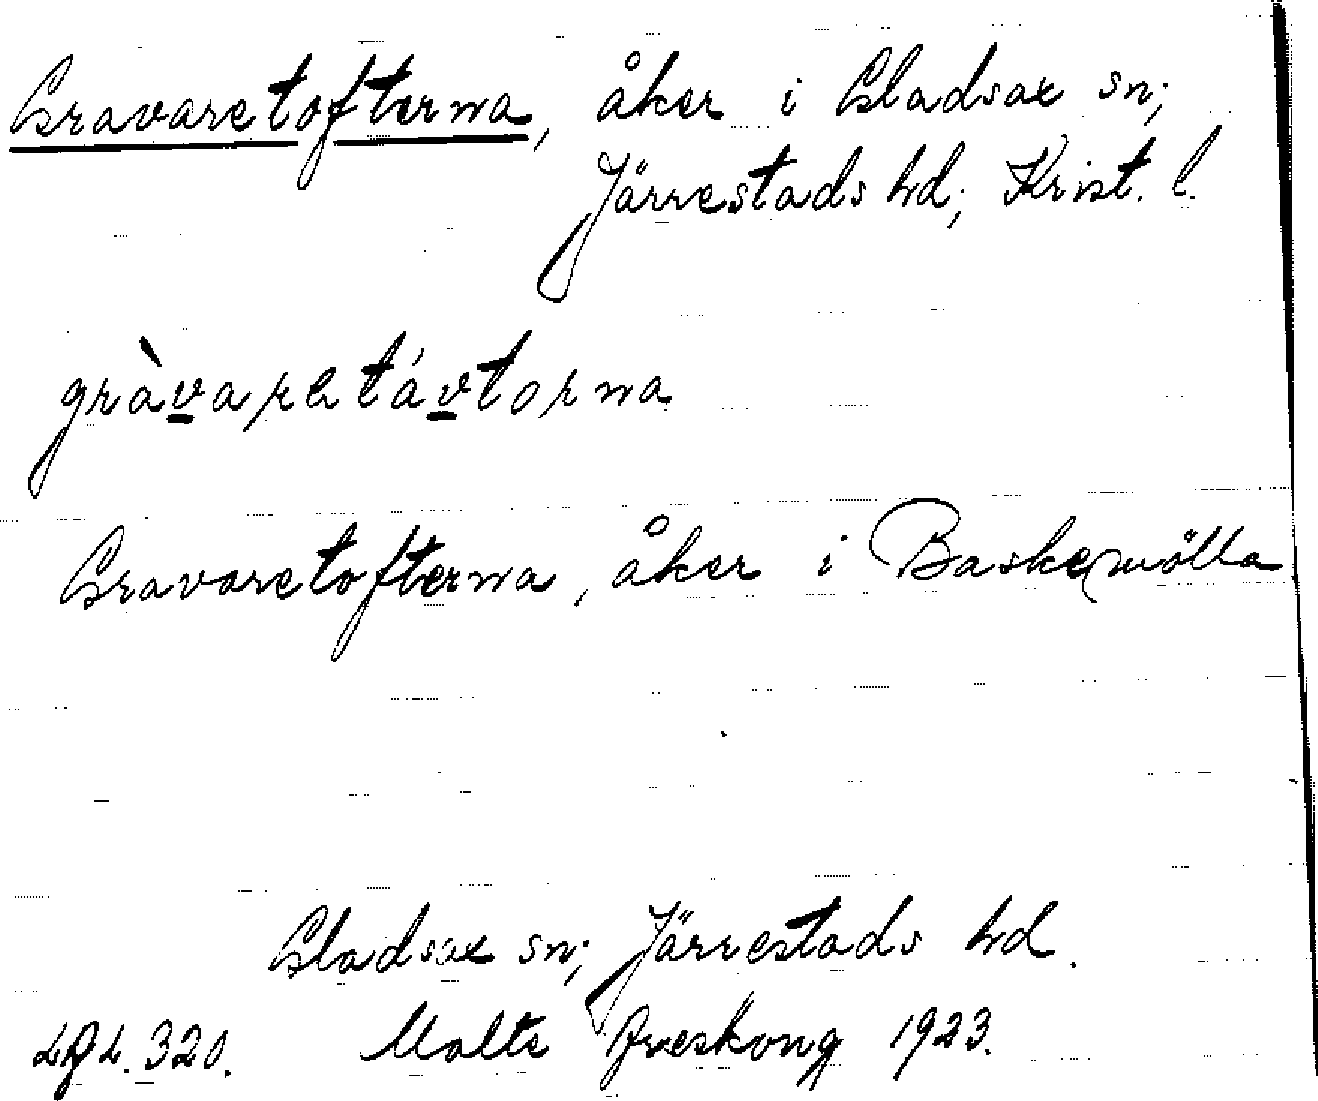 Gravaretofterna, åker i Gladsax sn;
Järrestads hd; Krist. l.
gràvaretávtorna
Gravaretofterna, åker i Baskemölla
Gladsax sn; Järrestads hd.
320. Malte Areskoug 1923.